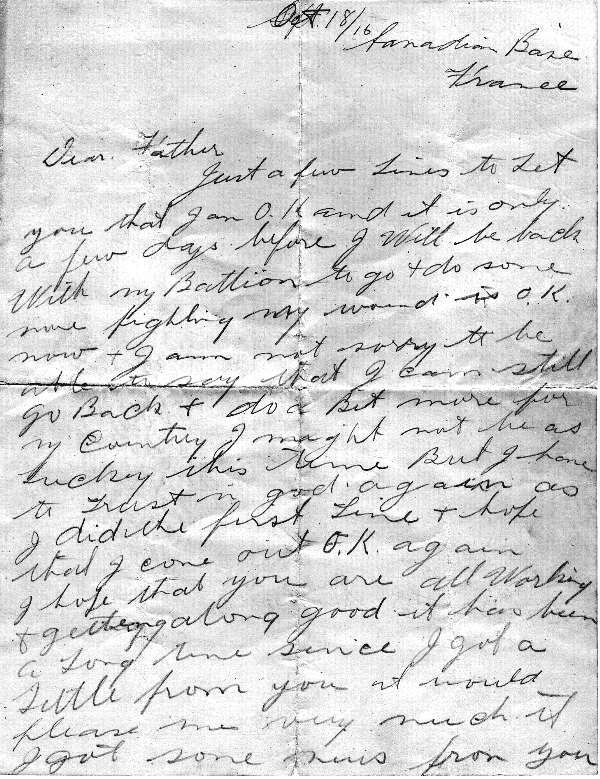 Oct. 18/16
Canadian Base
France
Dear. Father
Just a few Lines to Let
you that I am O.K and it is only
a few days before I Will be back
With my Battlion to go + do some
more fighting my wound is O.K.
now + I am not sorry to be
able to say that I can still
go Back + do a Bit more for
my Country I maght not be as
luckey this time But I have
to Trust in god again as
I did the first Time + hope
that I come out O.K. again
I hope that you are all Working
+ getting along good it has been
a Long time since I got a
Lettle from you it would
please me very much if
I got some news from you